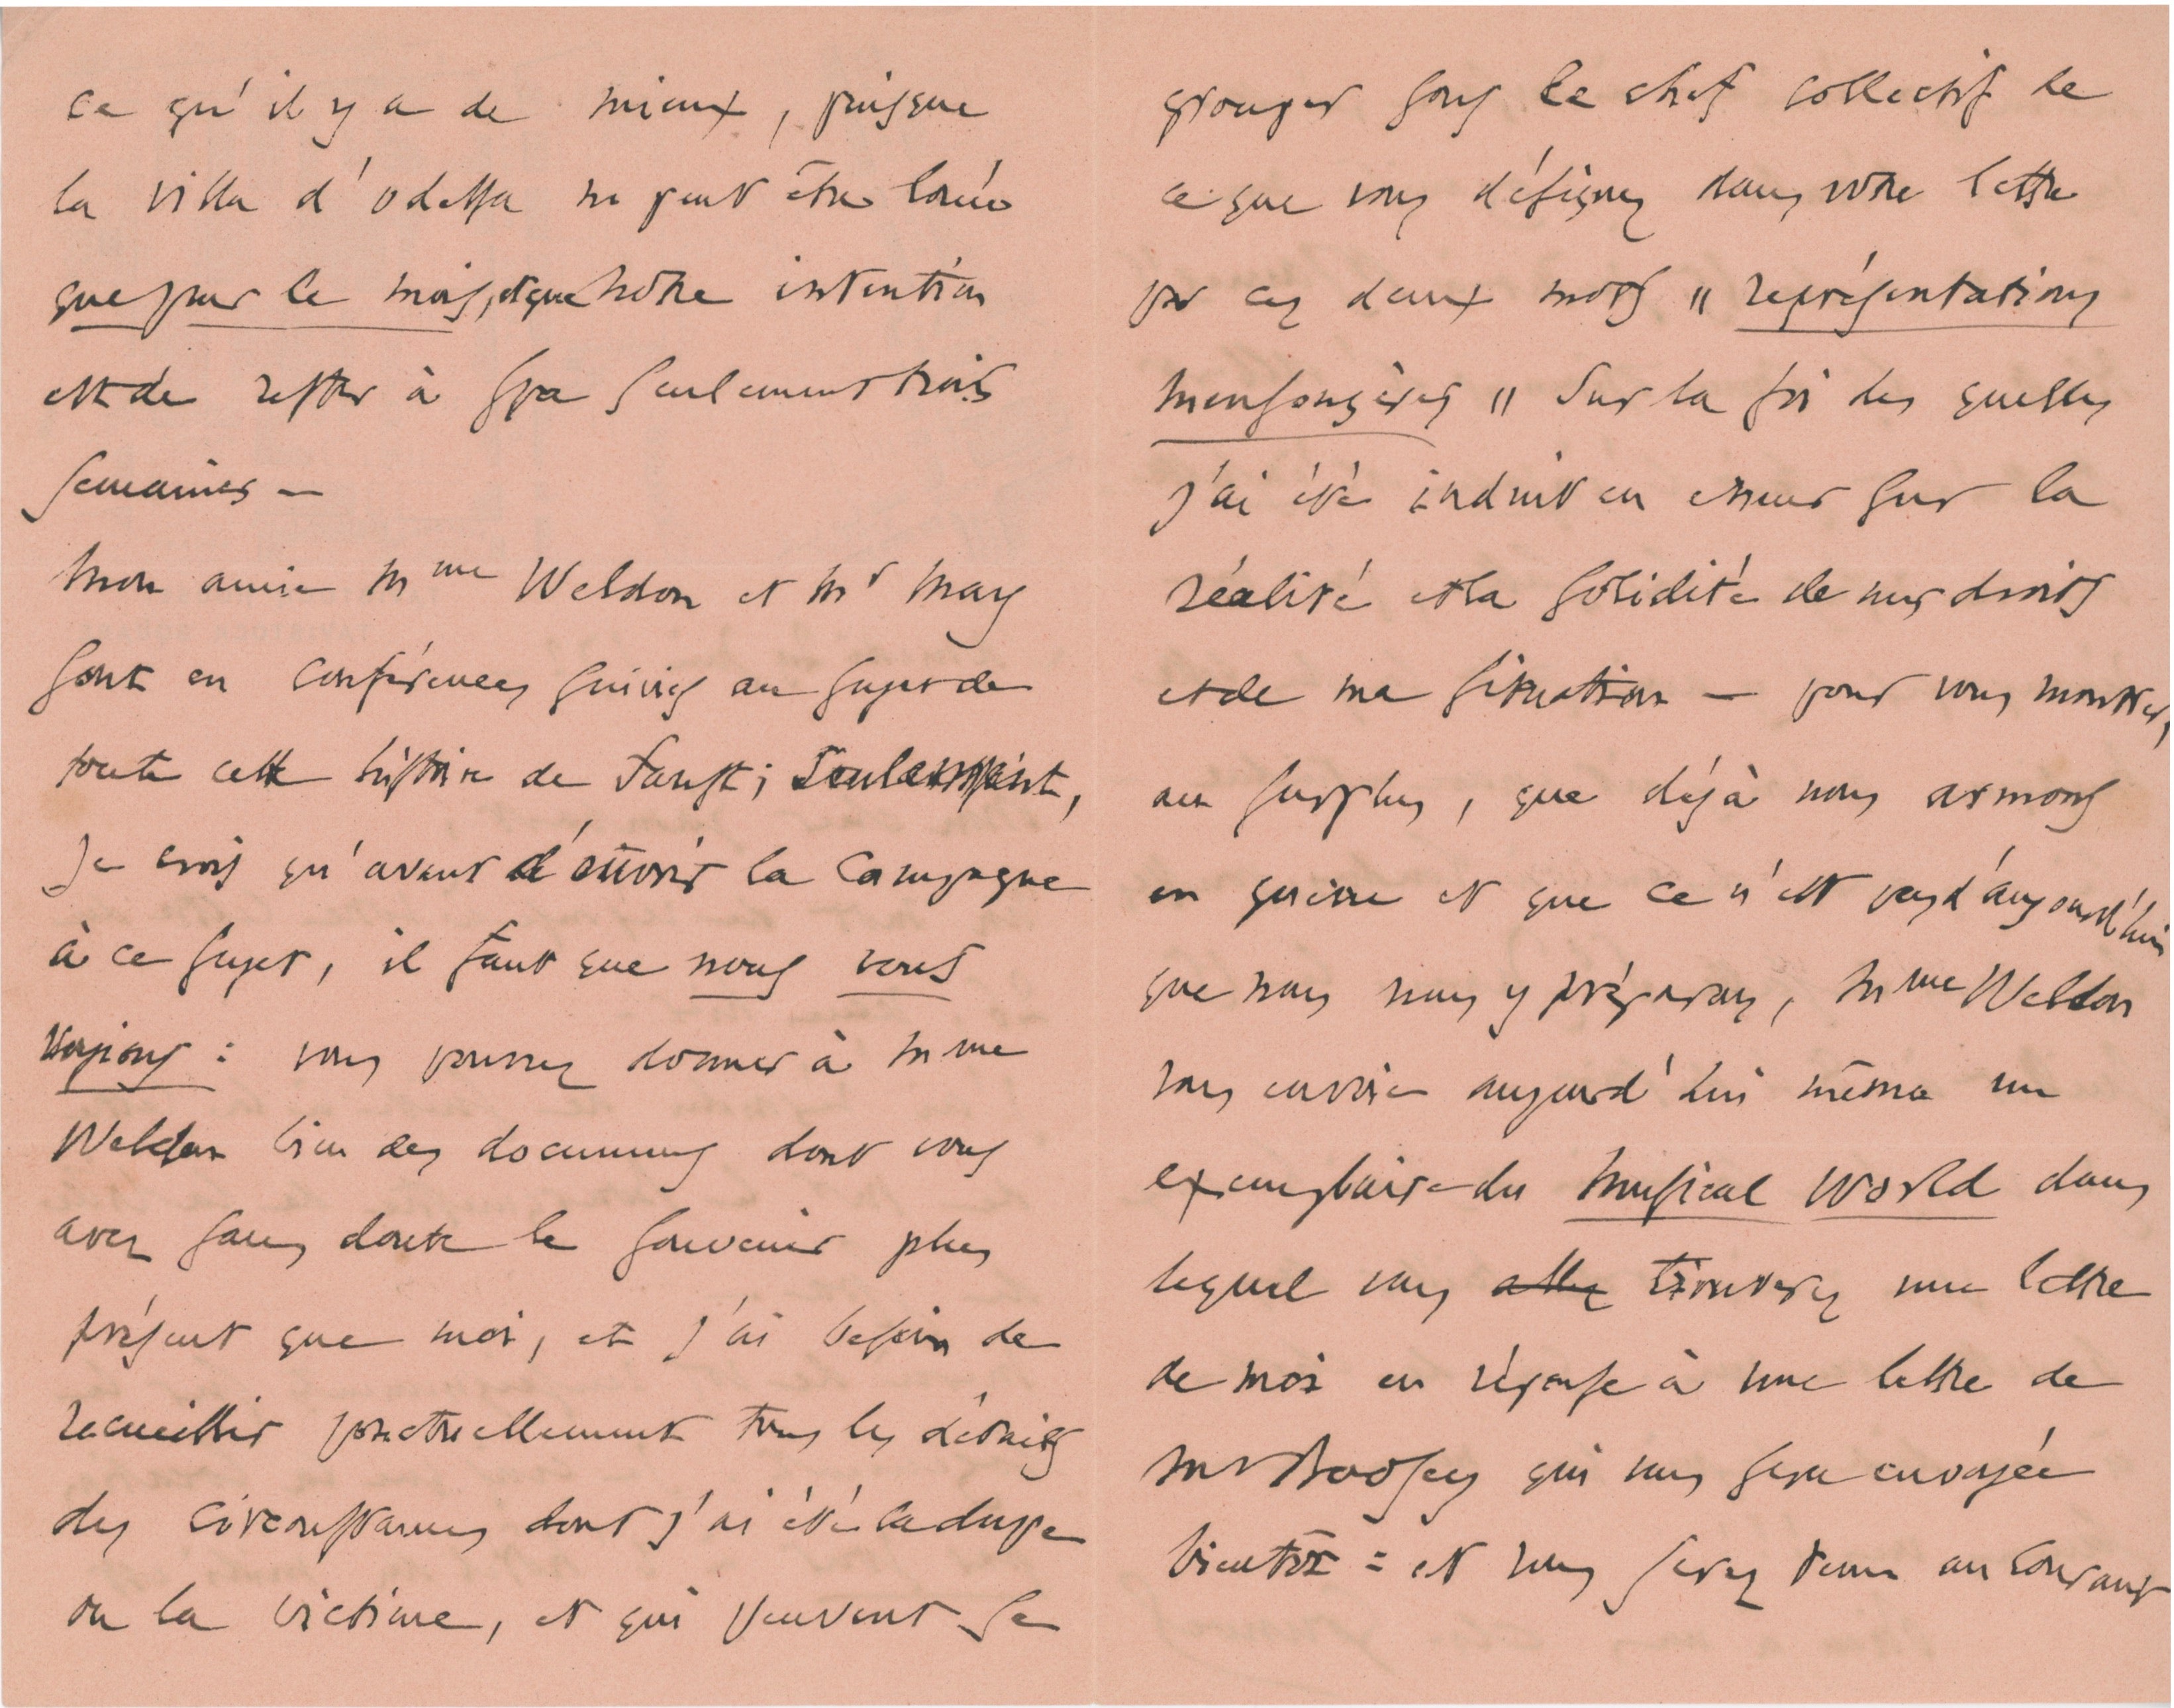 ce qu'il y a de mieux, puisque
la villa d'odessa ne peut être louée
que pour le mois, et que notre intention
est de rester à Spa seulement trois
semaines —
Mon amie Mme Weldon et Mr May
sont en conférences suivies au sujet de
toute cette histoire de Faust; Seulement,
Je crois qu'avant d'ouvrir la Campagne
à ce sujet, il faut que nous vous
voyions : vous pourrez donner à Mme
Weldon bien des documents dont vous
avez sans doute le souvenir plus
présent que moi, et j'ai besoin de
recueillir ponctuellement tous les détails
des circonstances dont j'ai été la dupe
ou la victime, et qui peuvent se
grouper sous le chef collectif de
ce que vous désignez dans votre lettre
par ces deux mots "représentations
mensongères" Sur la foi des quelles
j'ai été induit en erreur sur la
réalité et la solidité de mes droits
et de ma situation — pour vous montrer,
au surplus, que déjà nous armons
en guerre et que ce n'est pas d'aujourd'hui
que nous nous y préparons, Mme Weldon
vous envoie aujourd'hui même un
exemplaire du Musical World dans
lequel vous allez trouverez une lettre
de moi en réponse à une lettre de
Mr Boosey qui vous sera envoyée
bientôt : et vous serez tenu au courant